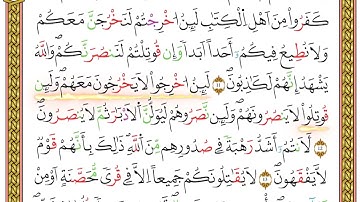 كَفَرُوا۟ مِنْ اَهْلِ الْكِتَابِ لَئِنْ اُخْرِجْتُمْ لَنَخْرُجَنَّ مَعَكُمْ
وَلَا نُط۪يعُ ف۪يكُمْ اَحَداً اَبَداً وَاِنْ قُوتِلْتُمْ لَنَنْصُرَنَّكُمْ وَاللّٰهُ
يَشْهَدُ اِنَّهُمْ لَكَاذِبُونَ ﴿١١﴾ لَئِنْ اُخْرِجُوا لَا يَخْرُجُونَ مَعَهُمْ وَلَئِنْ
قُوتِلُوا لَا يَنْصُرُونَهُمْ وَلَئِنْ نَصَرُوهُمْ لَيُوَلُّنَّ الْاَدْبَارَ ثُمَّ لَا يُنْصَرُونَ
﴿١٢﴾ لَاَنْتُمْ اَشَدُّ رَهْبَةً ف۪ي صُدُورِهِمْ مِنَ اللّٰهِ ذٰلِكَ بِاَنَّهُمْ قَوْمٌ
لَا يَفْقَهُونَ ﴿١٣﴾ لَا يُقَاتِلُونَكُمْ جَم۪يعاً اِلَّا ف۪ي قُرًى مُحَصَّنَةٍ اَوْ مِنْ